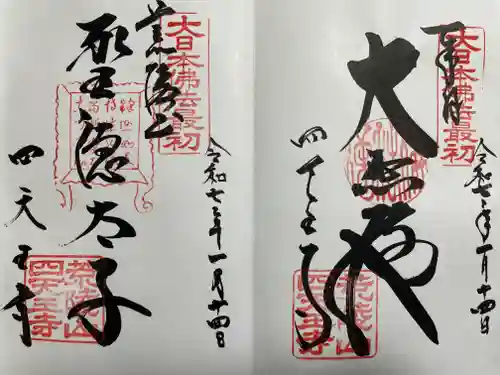 奉拝
大日本佛法最初
大
四天王寺
荒陵山
四天王寺
令和七年一月十四日
荒陵山
大日本佛法最初
聖徳太子
四天王寺
荒陵山
四天王寺
令和七年一月十四日